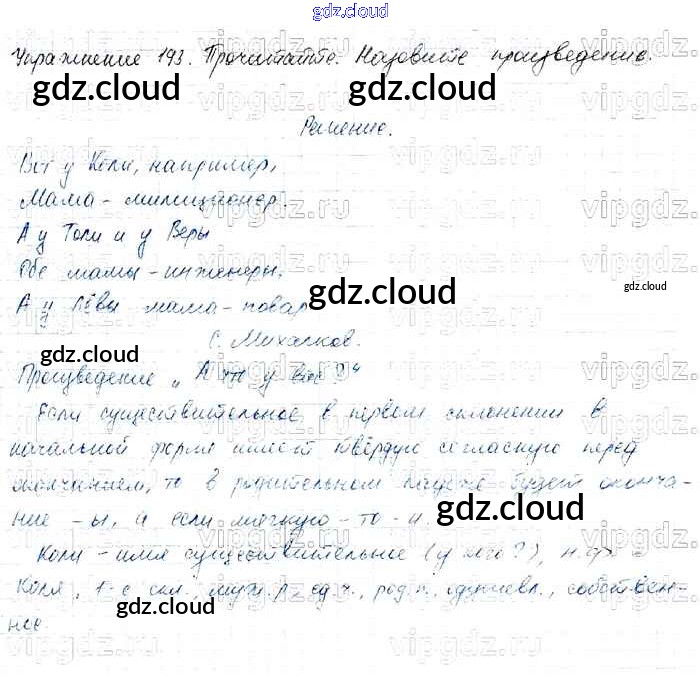 gdz.cloud
Упражнение 193. Прочитайте. Назовите произведение.
Решение.
Вот у Коли, например,
Мама - милиционер.
А у Толи и у Веры
Обе мамы - инженеры.
А у Лёвы мама - повар
С. Михалков.
Произведение „А что у вас?"
Если существительное в первом склонении в
начальной форме имеет твёрдую согласную перед
окончанием, то в родительном падеже будет оконча-
ние -ы, а если мягкую - то -и.
Коли - имя существительное (у кого?), н.ф. -
Коля, 1-е скл., муж. р., ед. ч., род. п., одушевл., собствен-
ное